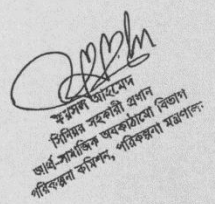 আহমেদ
সিনিয়র সহকারী প্রধান
আর্থ-সামাজিক অবকাঠামো বিভাগ
পরিকল্পনা কমিশন, পরিকল্পনা মন্ত্রণালয়